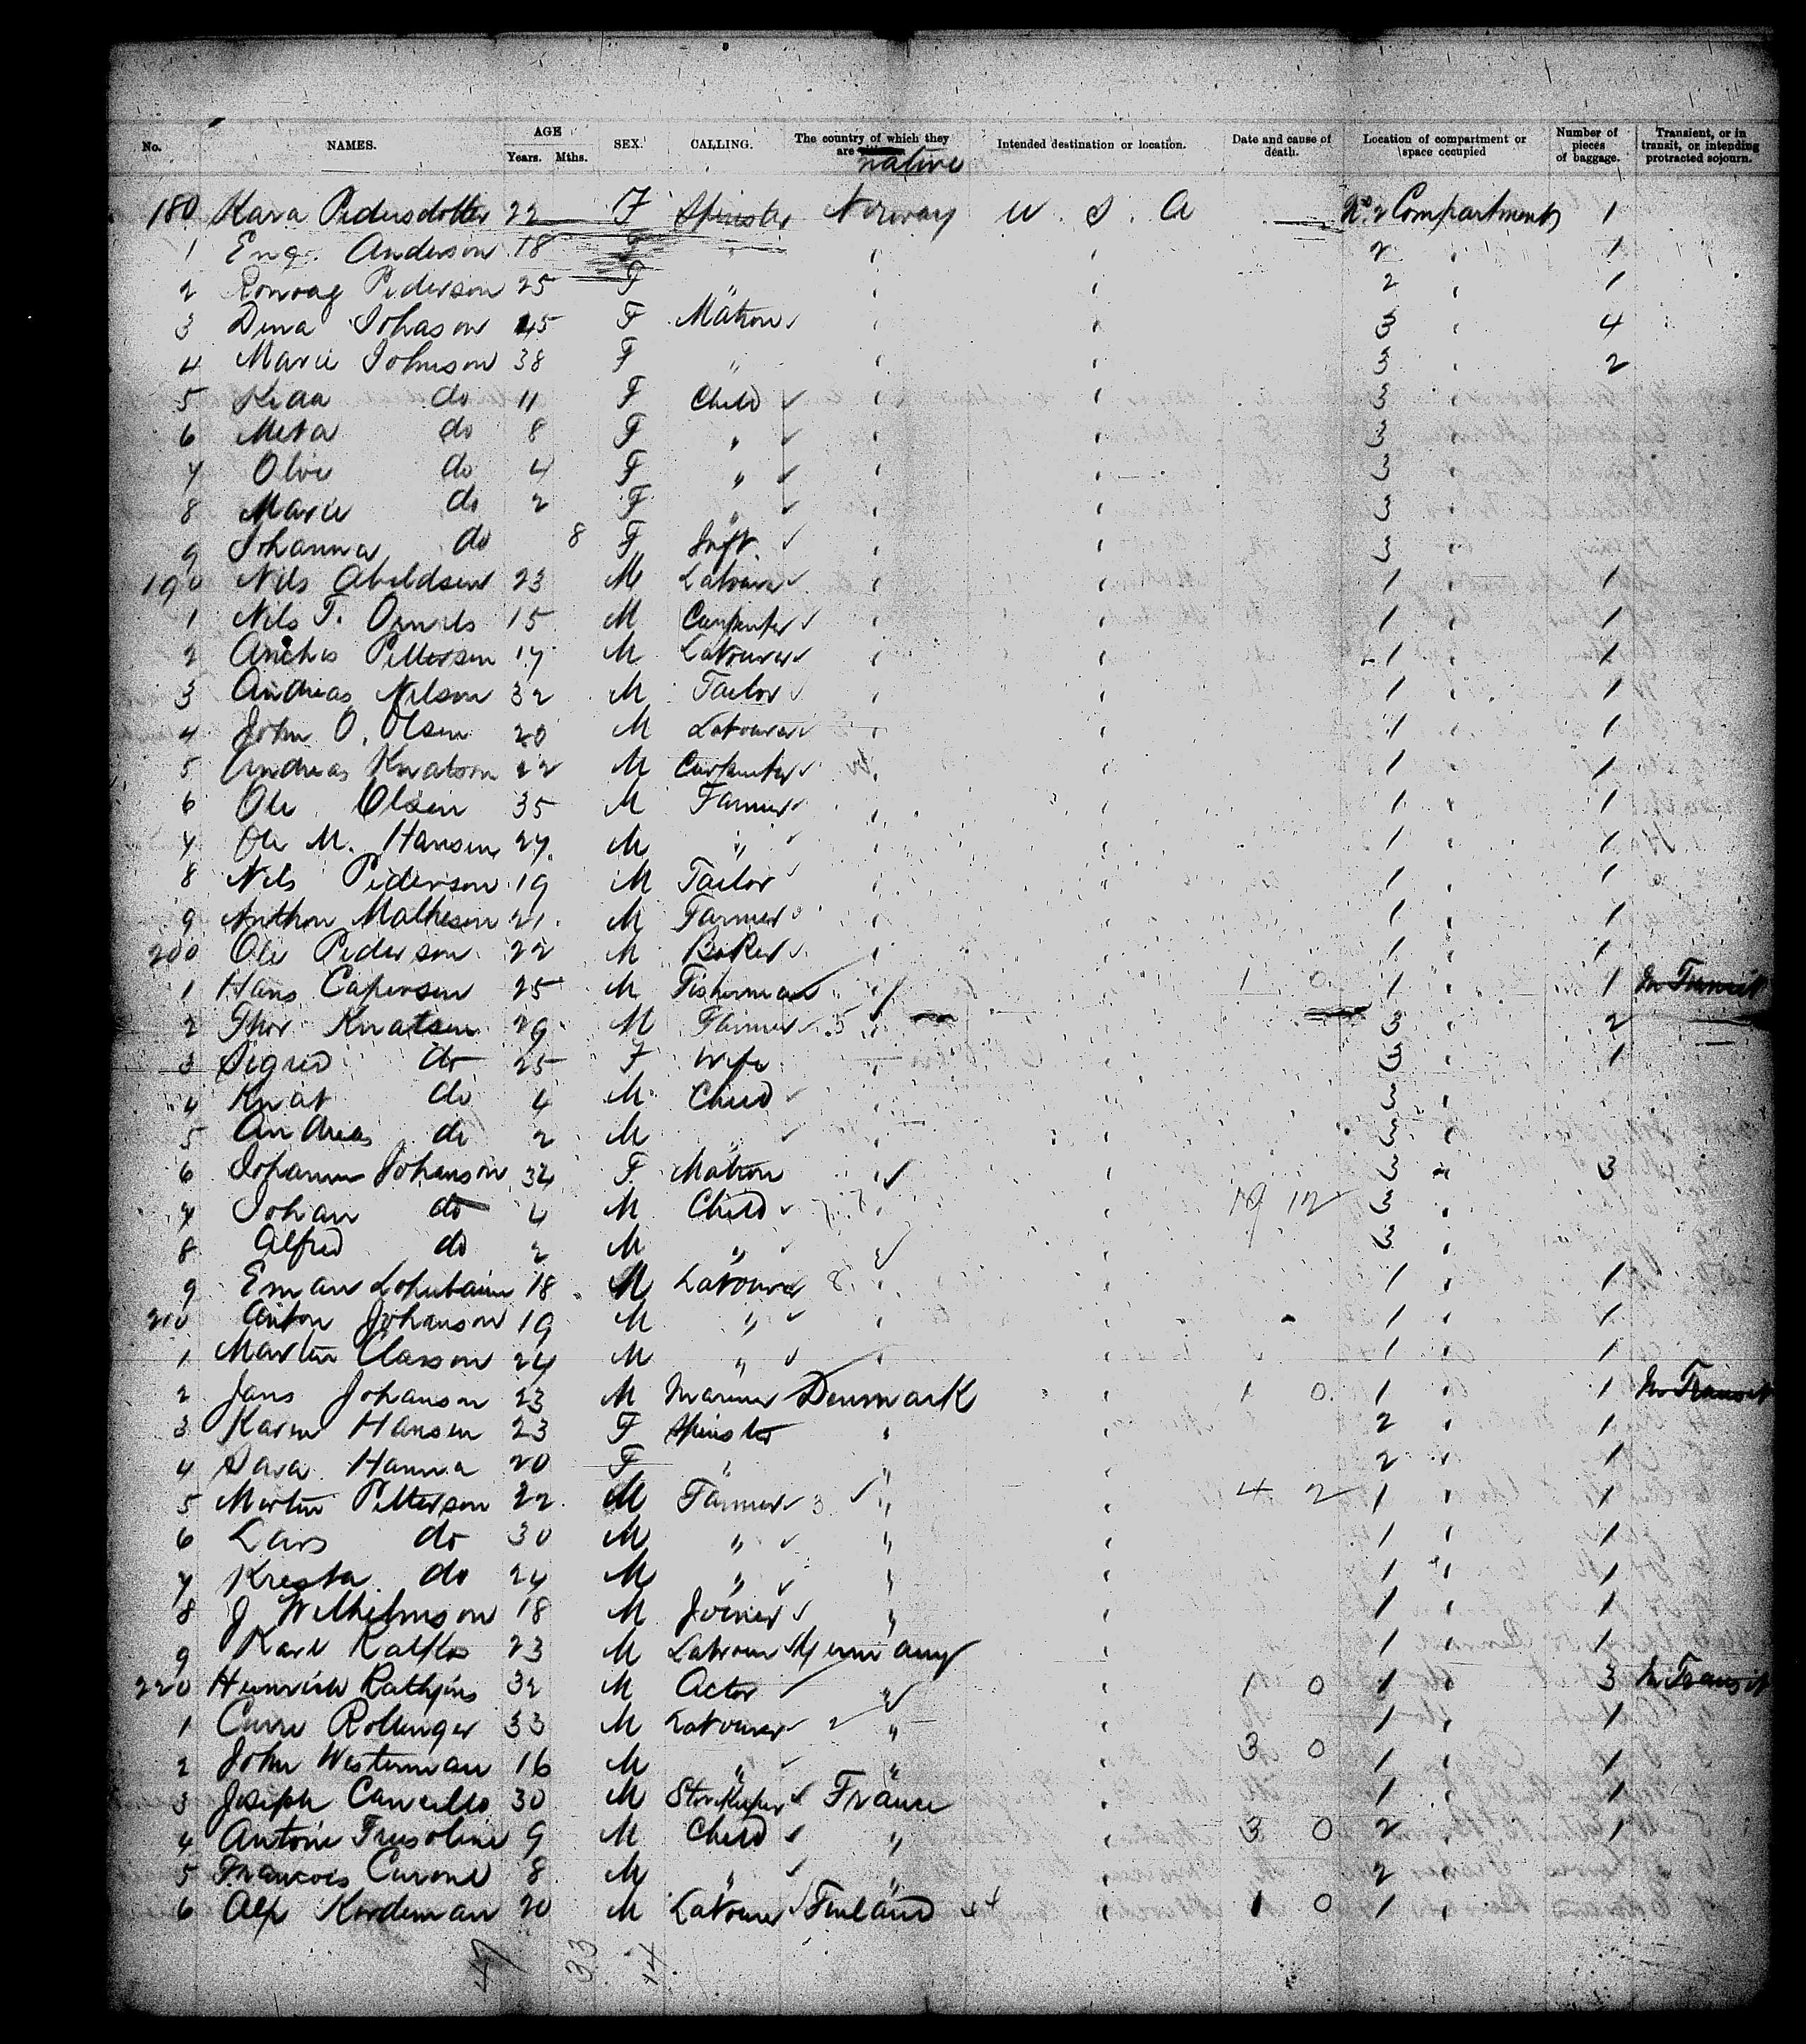 No. NAMES. AGE Years. Mths. SEX. CALLING. The country of which they are native Intended destination or location. Date and cause of death. Location of compartment or space occupied Number of pieces of baggage. Transient, or in transit, or intending protracted sojourn.
180 Kara Pedersdotter 22 F Spinster Norway U. S. A No. 2 Compartment 1
1 Eng. Anderson 18 F " ' ' 2 ' 1
2 Pederson 25 F " ' ' 2 ' 1
3 Dina Johason 45 F Matron ' ' 3 ' 4
4 Marie Johnson 38 F " ' ' 3 ' 2
5 do 11 F Child ' ' 3 '
6 Meta do 8 F " ' ' 3 '
7 Olive do 4 F " ' ' 3 '
8 Marie do 2 F " ' ' 3 '
9 Johanna do 8 F Inft. ' ' 3 '
190 Nils Abildsen 23 M Labourer ' ' 1 ' 1
1 Nils T. 15 M Carpenter ' ' 1 ' 1
2 Pettersen 17 M Labourer ' ' 1 ' 1
3 Andreas Nilson 32 M Tailor ' ' 1 ' 1
4 John O. Olsen 20 M Labourer ' ' 1 ' 1
5 Andreas Knatson 22 M Carpenter ' ' 1 ' 1
6 Ole Olsen 35 M Farmer ' ' 1 ' 1
7 Ole M. Hansen 27 M " ' ' 1 ' 1
8 Nils Pederson 19 M Tailor ' ' 1 ' 1
9 Anthon Matheson 21 M Farmer ' ' 1 ' 1
200 Ole Pederson 22 M Baker ' ' 1 ' 1
1 Hans Capersen 25 M Fisherman ' ' 1 0 1 ' 1 In Transit
2 Thor Knatsen 29 M Farmer 5 ' ' 3 ' 2
3 Sigred do 25 F Wife ' ' 3 ' 1
4 Knat do 4 M Child ' ' 3 '
5 Andreas do 2 M " ' ' 3 '
6 Johanna Johanson 34 F Matron ' ' 3 " 3
7 Johan do 4 M Child ' ' 19 12 3 '
8 Alfred do 2 M " ' ' 3 '
9 Eman 18 M Labourer 8 ' ' 1 ' 1
210 Anton Johanson 19 M " ' ' 1 ' 1
1 Martin Classon 24 M " ' ' 1 ' 1
2 Jans Johanson 23 M Mariner Denmark ' 1 0 1 ' 1 In Transit
3 Karen Hansen 23 F Spinster ' ' 2 ' 1
4 Sara Hanna 20 F " " ' 2 ' 1
5 Morten Petterson 22 M Farmer 3 " ' 4 2 1 ' 1
6 Lars do 30 M " " ' 1 ' 1
7 Kresta do 24 M " " ' 1 ' 1
8 J Wilhelmson 18 M Joiner " ' 1 ' 1
9 Karl 23 M Labourer Germany ' 1 ' 1
220 Heinrich Rathjins 32 M Actor " ' 1 0 1 ' 3 In Transit
1 Rollinger 33 M Labourer 2 " ' 1 ' 1
2 John Westerman 16 M " " ' 3 0 1 ' 1
3 Joseph Cancello 30 M Storekeeper France ' 1 ' 1
4 Antoine Trusoline 9 M Child " ' 3 0 2 ' 1
5 Francois Curone 8 M " " ' 2 '
6 Alf Kordeman 20 M Labourer Finland ' 1 0 1 ' 1
47 33 14